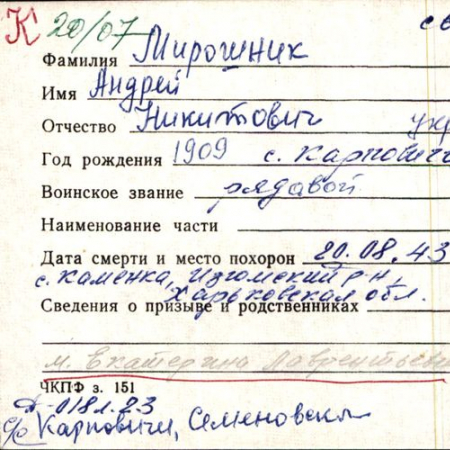 К 20/07
Фамилия Мирошник
Имя Андрей
Отчество Никитович укр
Год рождения 1909 с. Карпович
Воинское звание рядавой
Наименование части
Дата смерти и место похорон 20.08.43
с. Каменка, Изюмский р-н,
Харьковская обл.
Сведения о призыве и родственниках
м. Екатерина Лаврентьев
ЧКПФ з. 151
с/о Карповичи, Семеновск